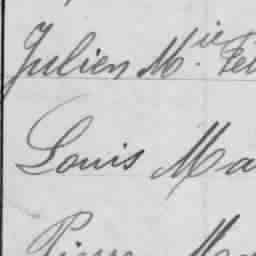 Julien M.ie Fél
Louis Ma
Pierre Ma